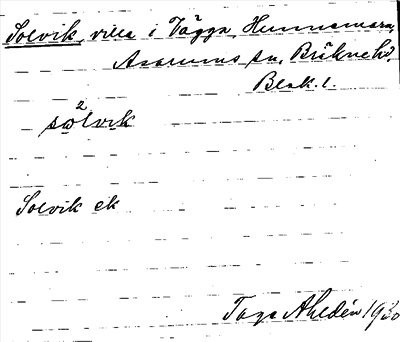 Solvik, villa i Vägga, Hunnemara,
Asarums sn, Bräkne hd,
Blek. l.
2
sólvik
Solvik ek
Tage Ahldén 1930